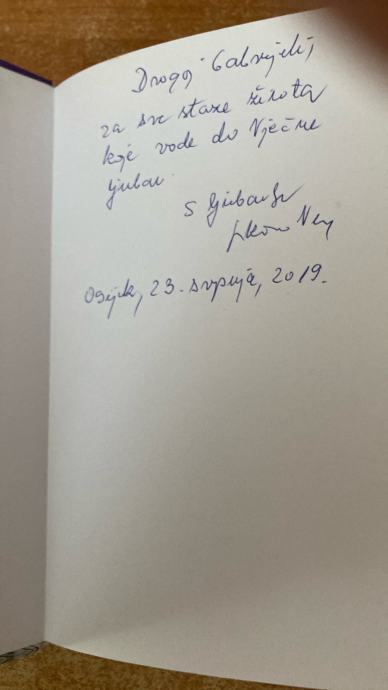 Dragoj Gabrijeli,
za sve staze života
koje vode do Vječne
ljubavi.
S ljubavlju
Osijek, 23. srpnja, 2019.